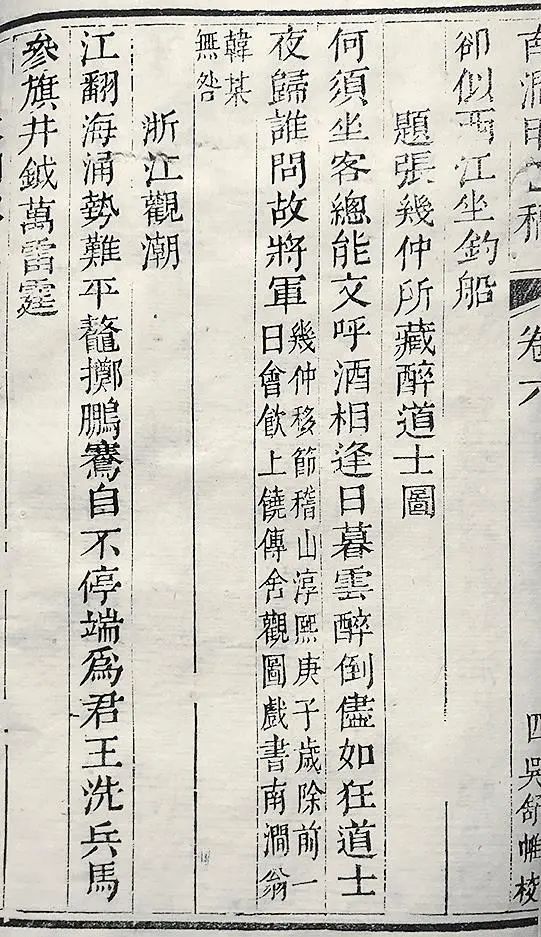 南澗甲乙稿 卷六 四 吳舒帷校
卻似西江坐釣船
題張幾仲所藏醉道士圖
何須坐客總能文呼酒相逢日暮雲醉倒儘如狂道士
夜歸誰問故將軍
幾仲移節稽山淳熙庚子歲除前一
日會飲上饒傳舍觀圖戲書南澗翁
韓某
無咎
浙江觀潮
江翻海涌勢難平鼇擲鵬鶱自不停端爲君王洗兵馬
參旗井鉞萬雷霆